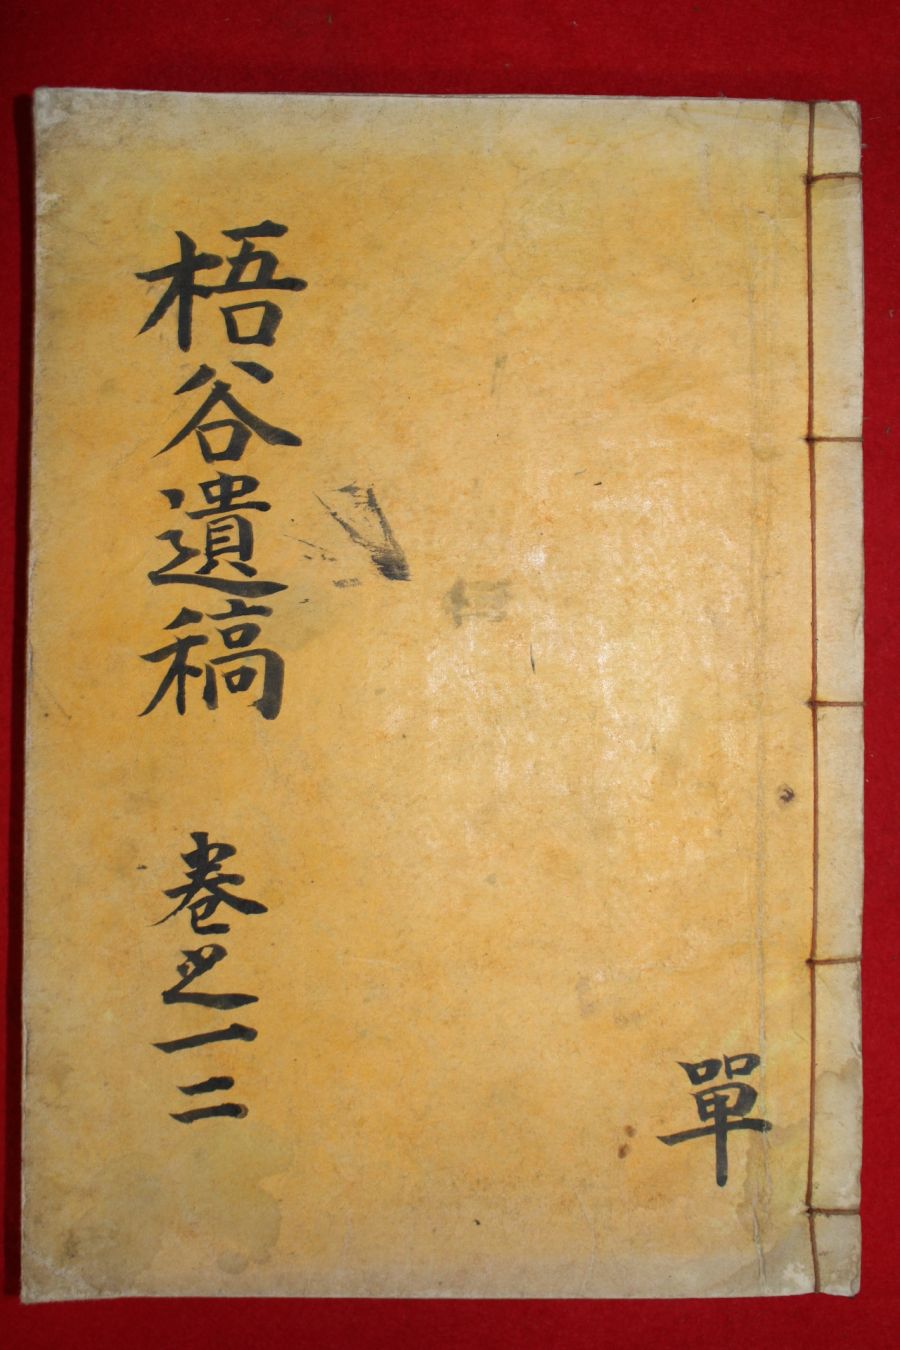 梧谷遺稿 卷之一二
單